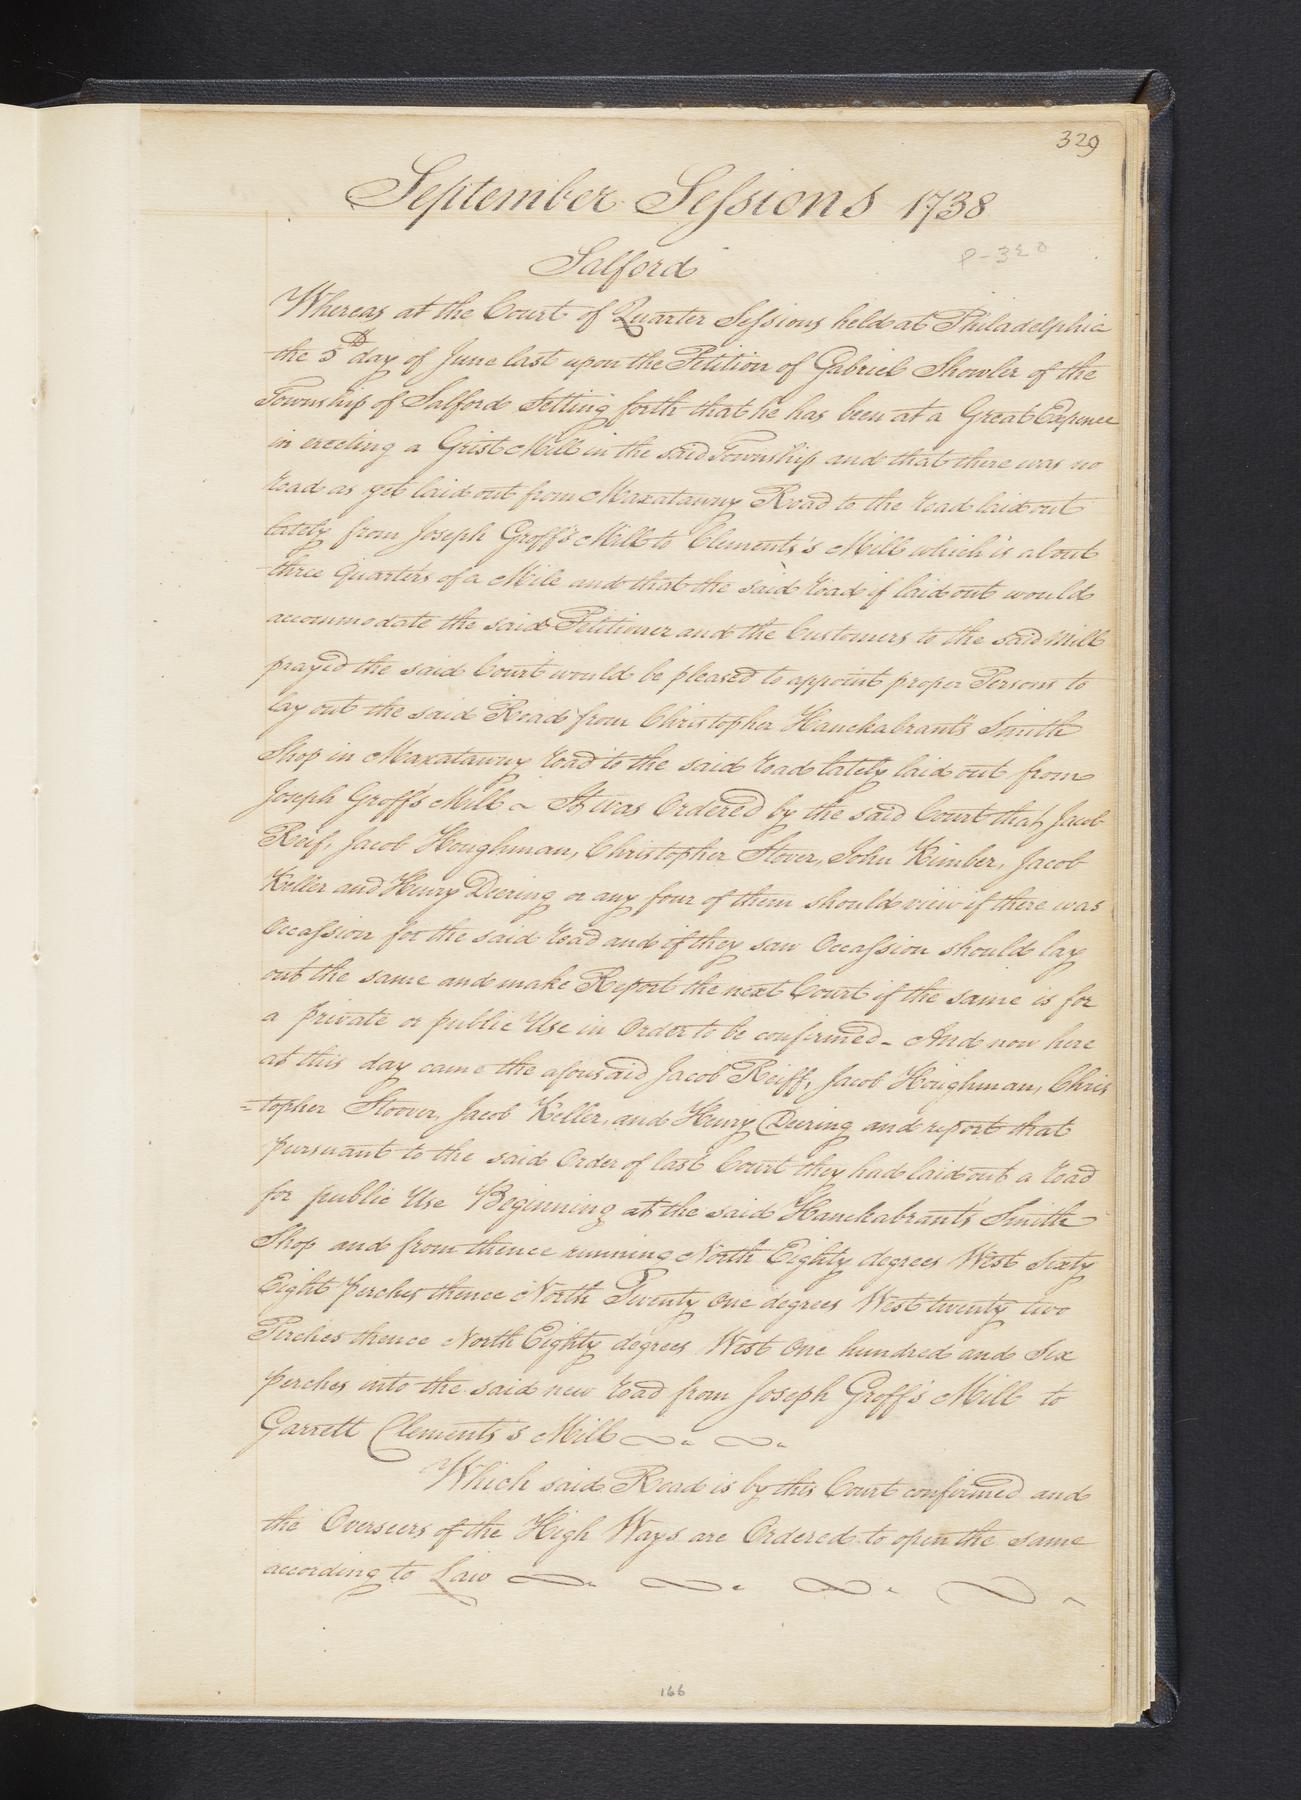 329
September Sessions 1738
P-320
Salford
Whereas at the Court of Quarter Sessions held at Philadelphia
the 5th day of June last upon the Petition of Gabriel Showler of the
Township of Salford Setting forth that he has been at a Great Expence
in erecting a Grist Mill in the said Township and that there was no
road as yet laid out from Maxatawny Road to the road laid out
lately from Joseph Groff's Mill to Clements's Mill which is about
three Quarters of a Mile and that the said road if laid out would
accommodate the said Petitioner and the Customers to the said Mill
prayed the said Court would be pleased to appoint proper Persons to
lay out the said Road from Christopher Hanckabrants Smith
Shop in Maxatawny road to the said road lately laid out from
Joseph Groffs Mill ~ It was Ordered by the said Court that Jacob
Reif, Jacob Houghman, Christopher Stover, John Kimber, Jacob
Keller and Henry Deering or any four of them should view if there was
Occassion for the said road and if they saw Occassion should lay
out the same and make Report the next Court if the same is for
a private or public Use in Order to be confirmed - And now here
at this day came the aforesaid Jacob Reiff, Jacob Houghman, Chris
=topher Stoover, Jacob Keller, and Henry Deering and report that
pursuant to the said Order of last Court they had laid out a road
for public Use Beginning at the said Hanckabrants Smith
Shop and from thence running North Eighty degrees West Sixty
Eight perches thence North Twenty One degrees West twenty two
Perches thence North Eighty degrees West One hundred and Six
perches into the said new road from Joseph Groff's Mill to
Garrett Clements's Mill
Which said Road is by this Court confirmed and
the Overseers of the High Ways are Ordered to open the same
according to Law
166